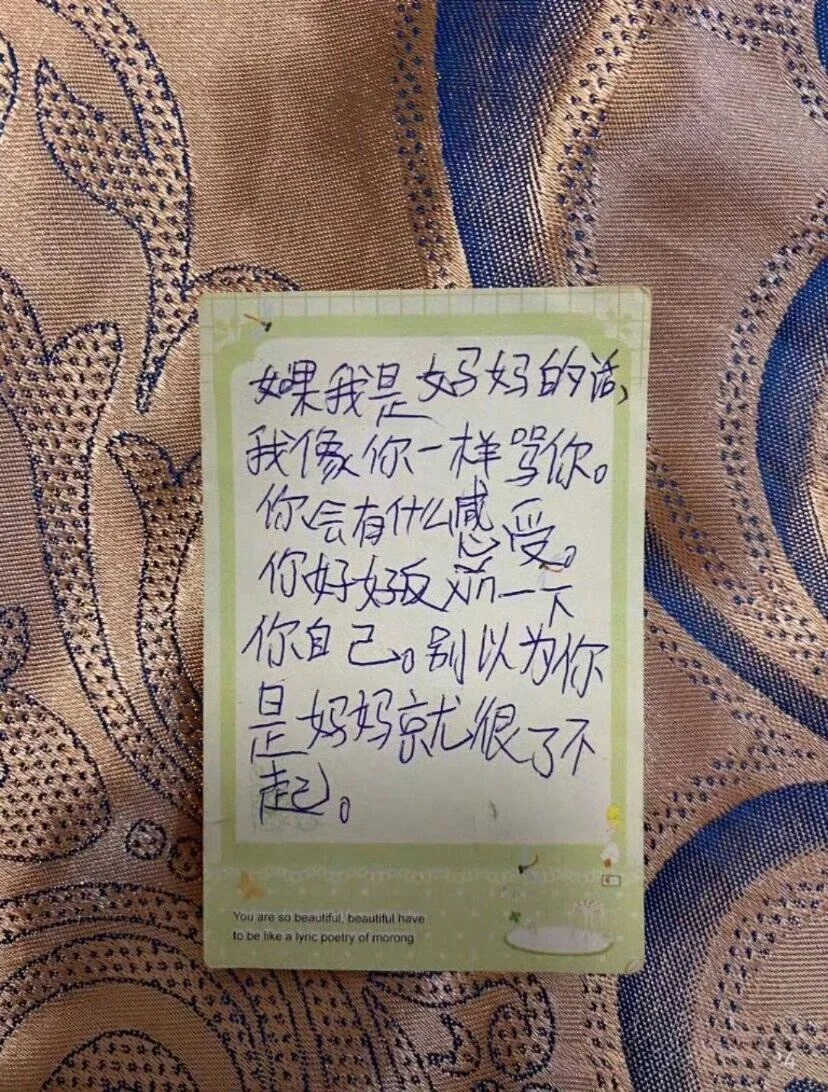 如果我是妈妈的话，
我像你一样骂你。
你会有什么感受。
你好好反对一下
你自己。别以为你
是妈妈就很了不
起。
You are so beautiful, beautiful have
to be like a lyric poetry of morong